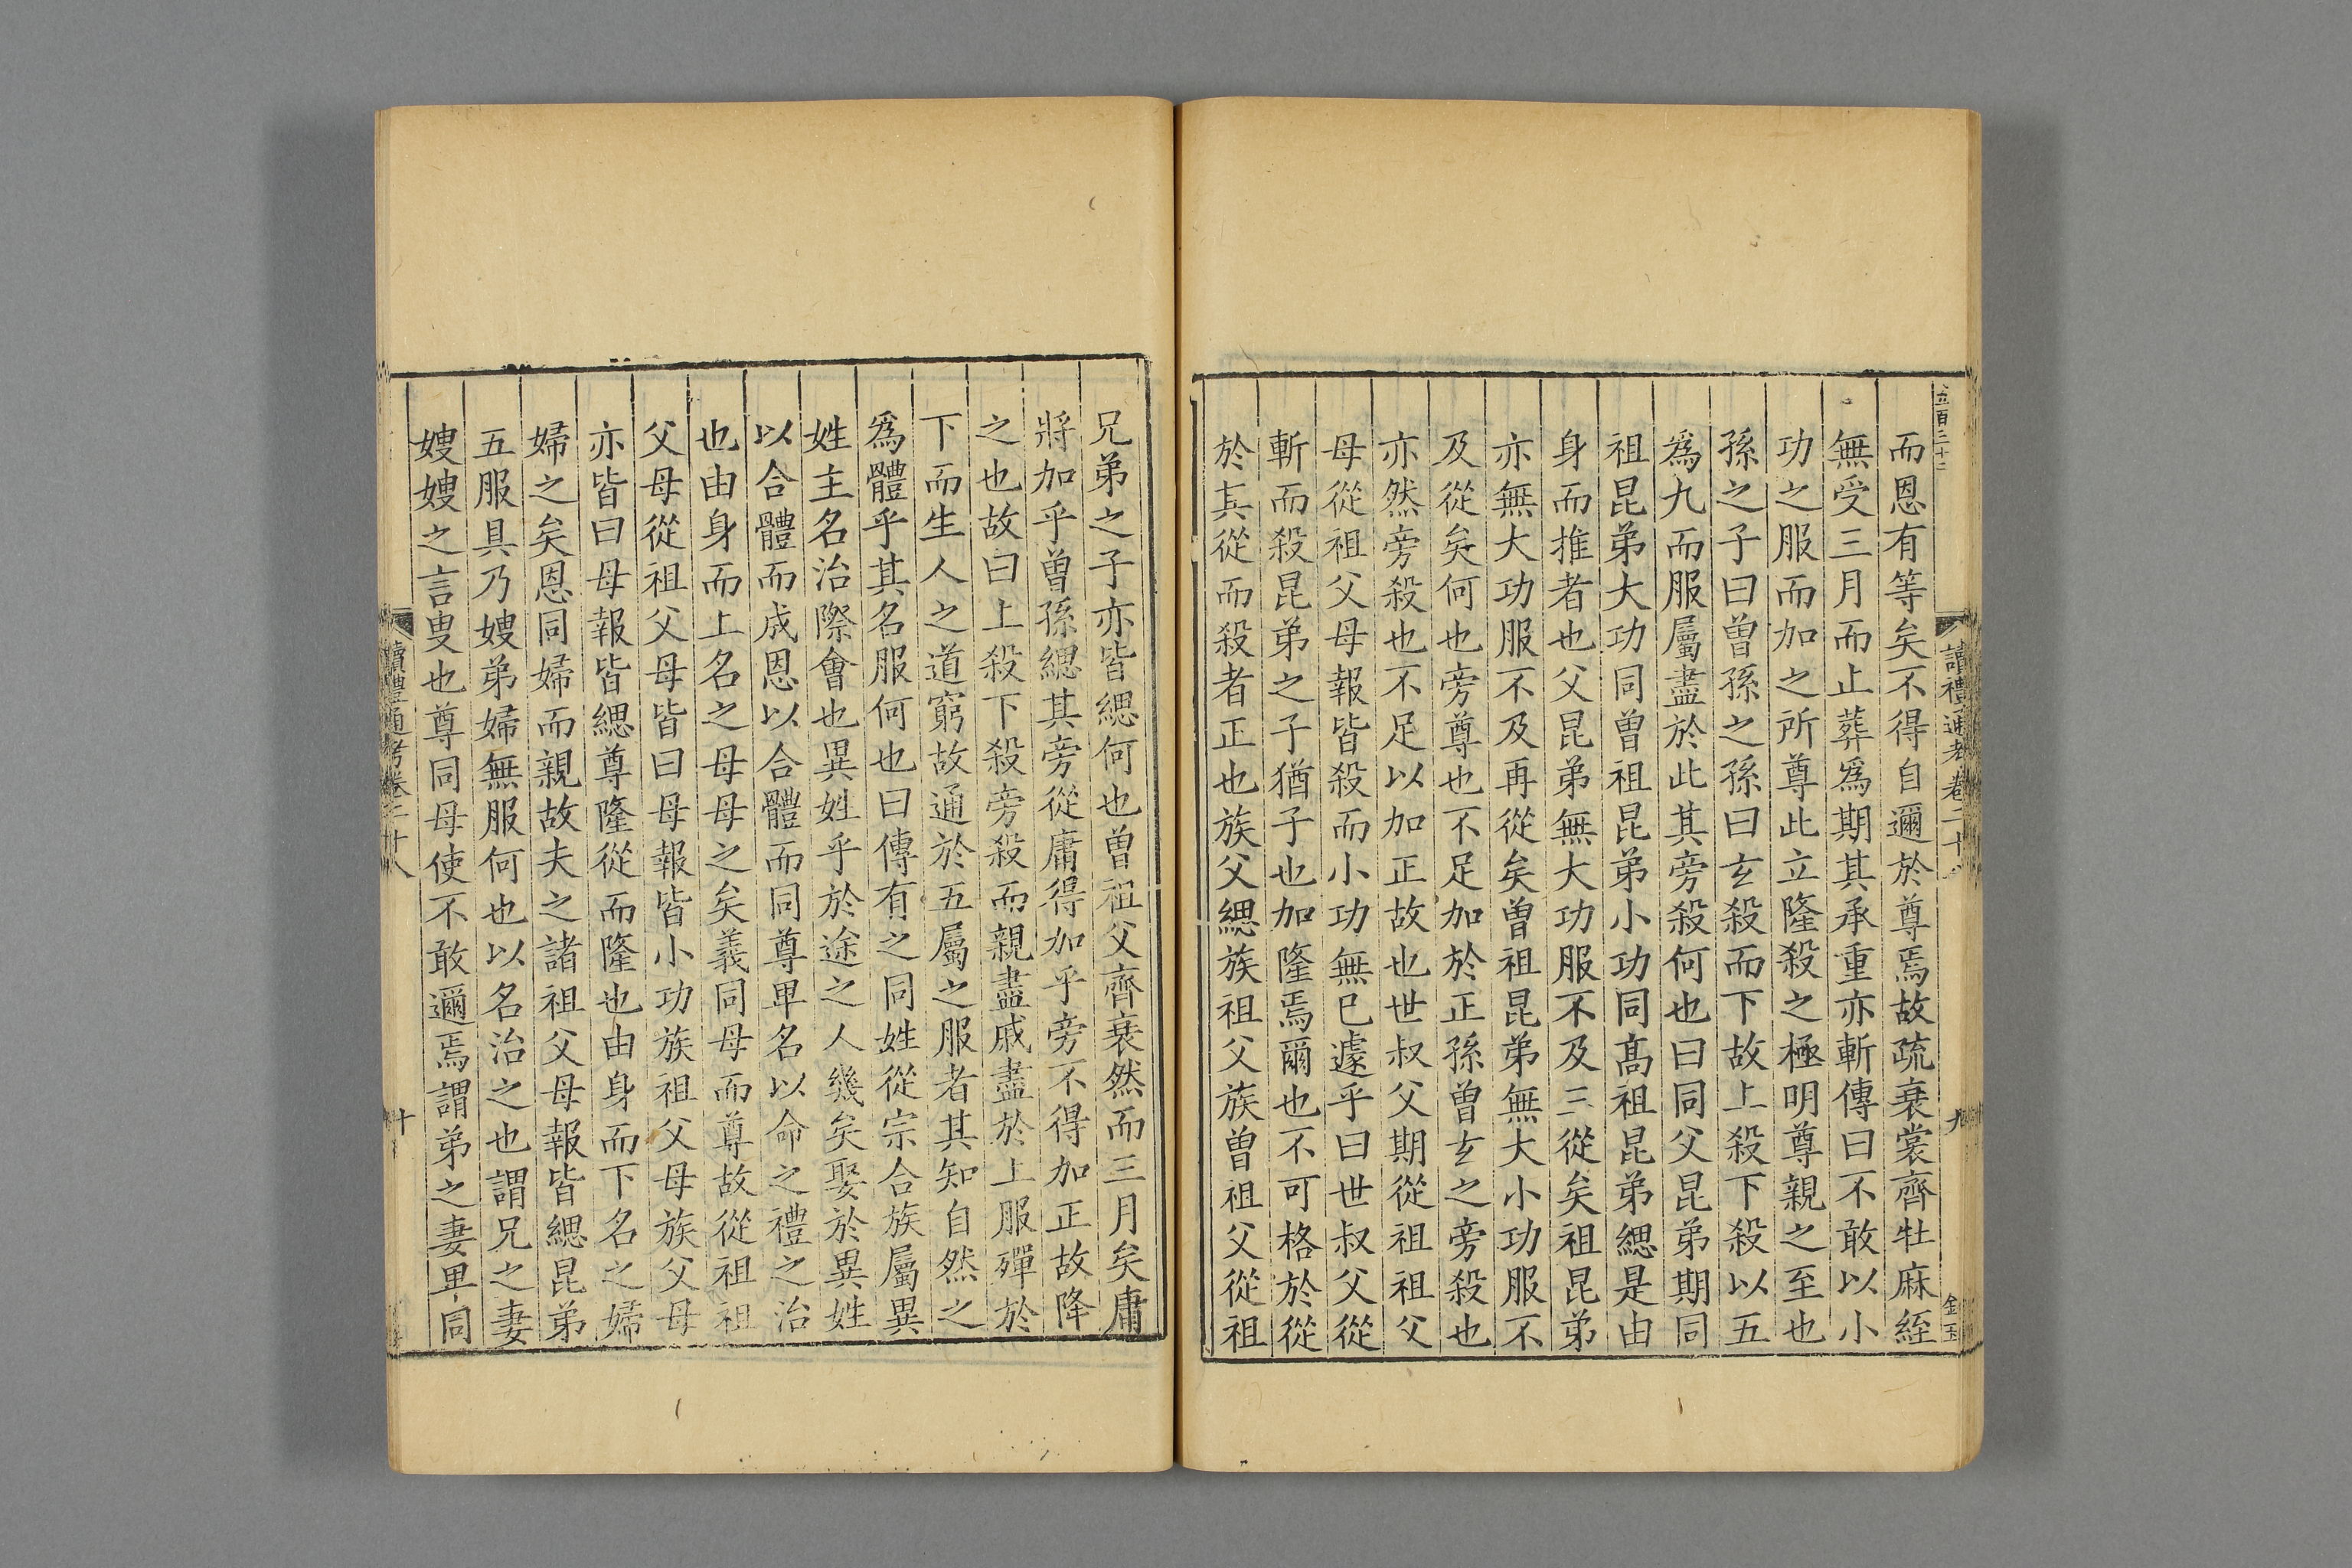 讀禮通考卷二十八
九
金玉
而恩有等矣不得自邇於尊焉故疏衰裳齊牡麻絰
無受三月而止葬爲期其承重亦斬傳曰不敢以小
功之服而加之所尊此立隆殺之極明尊親之至也
孫之子曰曾孫之孫曰玄殺而下故上殺下殺以五
爲九而服屬盡於此其旁殺何也曰同父昆弟期同
祖昆弟大功同曾祖昆弟小功同髙祖昆弟緦是由
身而推者也父昆弟無大功服不及三從矣祖昆弟
亦無大功服不及再從矣曾祖昆弟無大小功服不
及從矣何也旁尊也不足加於正孫曾玄之旁殺也
亦然旁殺也不足以加正故也世叔父期從祖祖父
母從祖父母報皆殺而小功無已遽乎曰世叔父從
斬而殺昆弟之子猶子也加隆焉爾也不可格於從
於其從而殺者正也族父緦族祖父族曾祖父從祖
兄弟之子亦皆緦何也曾祖父齊衰然而三月矣庸
將加乎曾孫緦其旁從庸得加乎旁不得加正故降
之也故曰上殺下殺旁殺而親盡戚盡於上服殫於
下而生人之道窮故通於五屬之服者其知自然之
爲體乎其名服何也曰傳有之同姓從宗合族屬異
姓主名治際會也異姓乎於途之人幾矣娶於異姓
以合體而成恩以合體而同尊卑名以命之禮之治
也由身而上名之母母之矣義同母而尊故從祖祖
父母從祖父母皆曰母報皆小功族祖父母族父母
亦皆曰母報皆緦尊隆從而隆也由身而下名之婦
婦之矣恩同婦而親故夫之諸祖父母報皆緦昆弟
五服具乃嫂弟婦無服何也以名治之也謂兄之妻
嫂嫂之言叟也尊同母使不敢邇焉謂弟之妻卑同
讀禮通考卷二十八
十